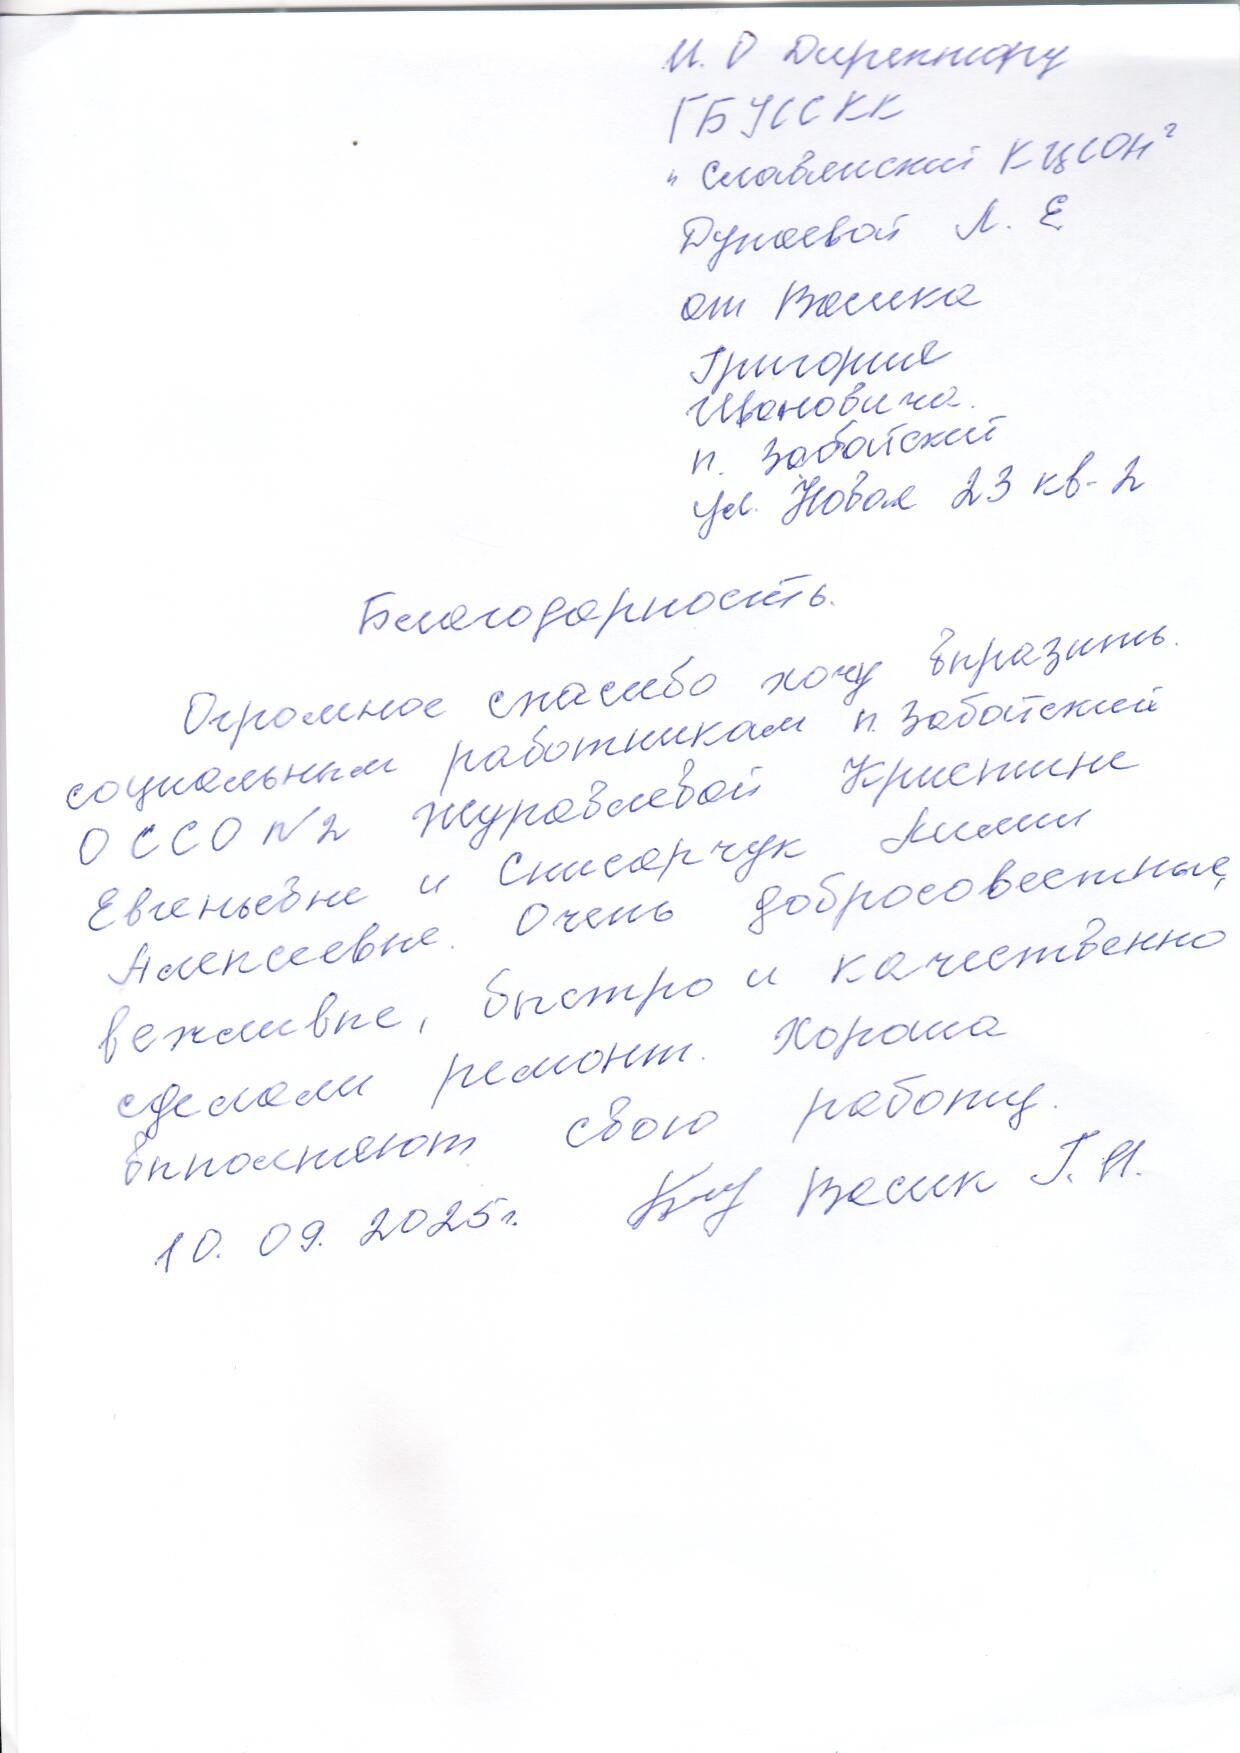 И.О Директору
ГБУ ССКК
"Славянский КЦСОН"
Дунаевой Л. Е
от Васика
Григория
Ивановича.
п. Забойский
ул. Новая 23 кв-2
Благодарность.
Огромное спасибо хочу выразить.
социальным работникам п. Забойский
ОССО №2 Журавлевой Кристине
Евгеньевне и Снисарчук Лилии
Алексеевне. Очень добросовестные,
вежливые, быстро и качественно
сделали ремонт. Хорошо
выполняют свою работу.
10. 09. 2025г. Васик Г. И.